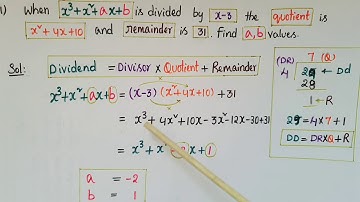 1) When x³+x²+ax+b is divided by x-3 the quotient is
x²+4x+10 and remainder is 31. Find a,b values.
Sol:
Dividend = Divisor × Quotient + Remainder
x³+x²+ax+b = (x-3) (x²+4x+10) +31
= x³+ 4x²+10x-3x²-12x-30+31
= x³+ x² x+ 1
a = -2
b = 1
(DR) 7 (Q)
4 29 → Dd
28
1 → R
29 = 4×7+1
DD = DR×Q+R